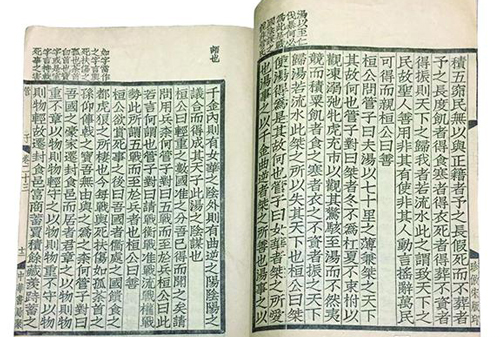 積五窮民無以與正籍者予之長假死而不葬者
予之長度飢者得食寒者得衣死者得葬不資者
得振則天下之歸我者若流水此之謂致天下之
民故聖人善用非其有使非其人動言搖辭萬民
可得而親桓公曰善
桓公問管子曰夫湯以七十里之薄兼桀之天下
其故何也管子對曰桀者冬不為杠夏不束柎以
觀凍溺弛牝虎充市以觀其驚駭至湯而不然夷
競而積粟飢者食之寒者衣之不資者振之天下
歸湯若流水此桀之所以失其天下也桓公曰桀
使湯得為是其故何也管子曰女華者桀之所愛
也湯事之以千金曲逆者桀之所善也湯事之以
師也
千金內則有女華之陰外則有曲逆之陽陰陽之
議合而得成其天子此湯之陰謀也
桓公曰輕重之數國准之分吾已得而聞之矣請
問用兵奈何管子對曰五戰而至於兵桓公曰此
若言何謂也管子對曰請戰衡戰准戰流戰權戰
勢此所謂五戰而至於兵者也桓公曰善
桓公欲賞死事之後曰吾國者衢處之國饋食之
都虎狼之所棲也今每戰輿死扶傷如孤荼首之
孫仰倳戟之寶吾無由與之為之奈何管子對曰
吾國之豪家遷封食邑而居者君章之以物則物
重不章以物則物輕守之以物則物重不守以物
則物輕故遷封食邑富商蓄賈積餘藏羨跱蓄之
管子 卷二十三
中華書局聚